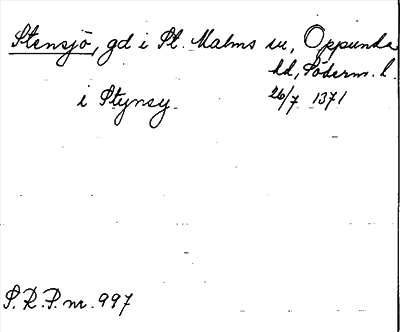 Stensjö, gd i St. Malms sn, Oppunda
hd, Söderm. l.
i Stynsy 26/7 1371
S.R.P. nr. 997